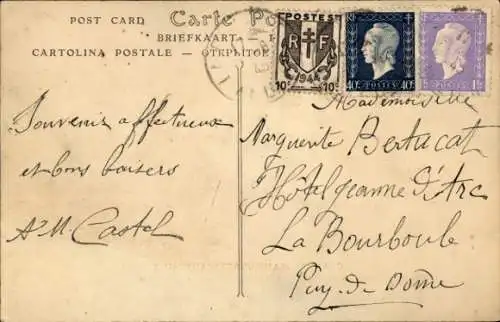 POST CARD Carte Po
BRIEFKAART
CARTOLINA POSTALE — ОТКРЫТОЕ
POSTES
RF
1944
10c 10c
RF
40c 40c
Mademoiselle
Marguerite Bertucat
Hôtel Jeanne d'Arc
La Bourboule
Puy-de-Dôme
Souvenir affectueux
et bons baisers
A M Castel